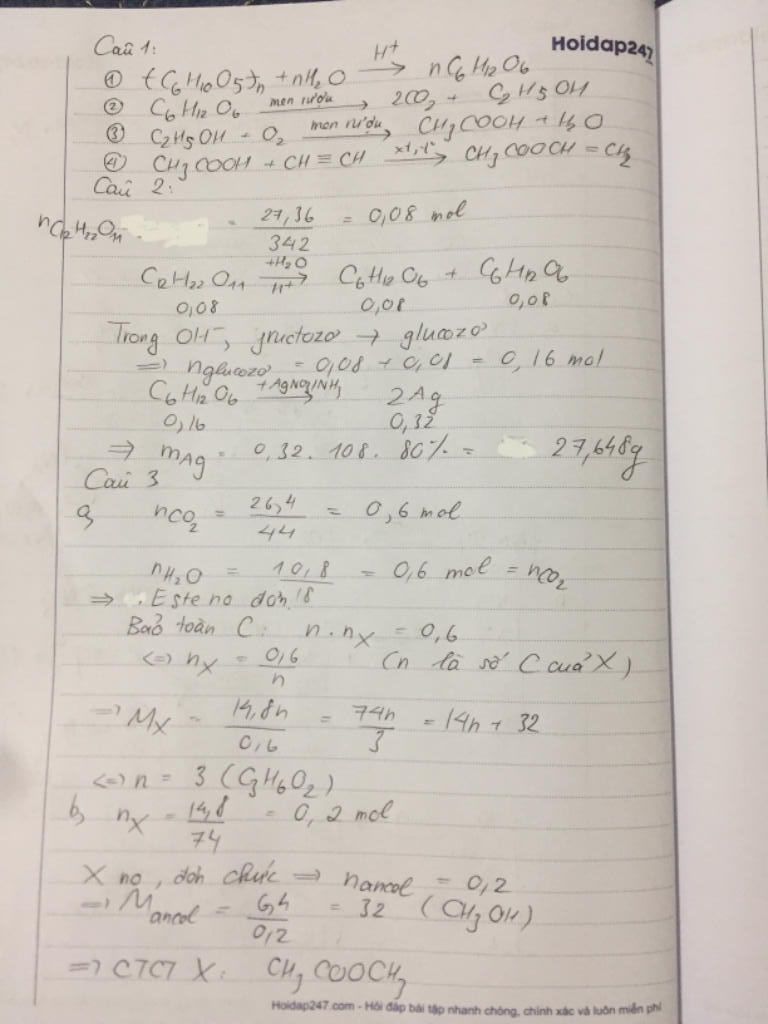 Hoidap247
Câu 1:
① (C6H10O5)n + nH2O H+→ nC6H12O6
② C6H12O6 men rượu→ 2CO2 + C2H5OH
③ C2H5OH + O2 men rượu→ CH3COOH + H2O
④ CH3COOH + CH ≡ CH xt,t°→ CH3COOCH = CH2
Câu 2:
nC12H22O11 = 27,36/342 = 0,08 mol
C12H22O11 +H2O/H+→ C6H12O6 + C6H12O6
0,08 0,08 0,08
Trong OH-, fructozơ → glucozơ
=> nglucozơ = 0,08 + 0,08 = 0,16 mol
C6H12O6 +AgNO3/NH3→ 2Ag
0,16 0,32
=> mAg = 0,32 . 108 . 80% = 27,648g
Câu 3
a, nCO2 = 26,4/44 = 0,6 mol
nH2O = 10,8/18 = 0,6 mol = nCO2
=> Este no đơn
Bảo toàn C: n . nX = 0,6
<=> nX = 0,6/n (n là số C của X)
=> MX = 14,8n/0,6 = 74n/3 = 14n + 32
<=> n = 3 (C3H6O2)
b, nX = 14,8/74 = 0,2 mol
X no, đơn chức => nancol = 0,2
=> Mancol = 6,4/0,2 = 32 (CH3OH)
=> CTCT X: CH3COOCH3
Hoidap247.com - Hỏi đáp bài tập nhanh chóng, chính xác và luôn miễn phí